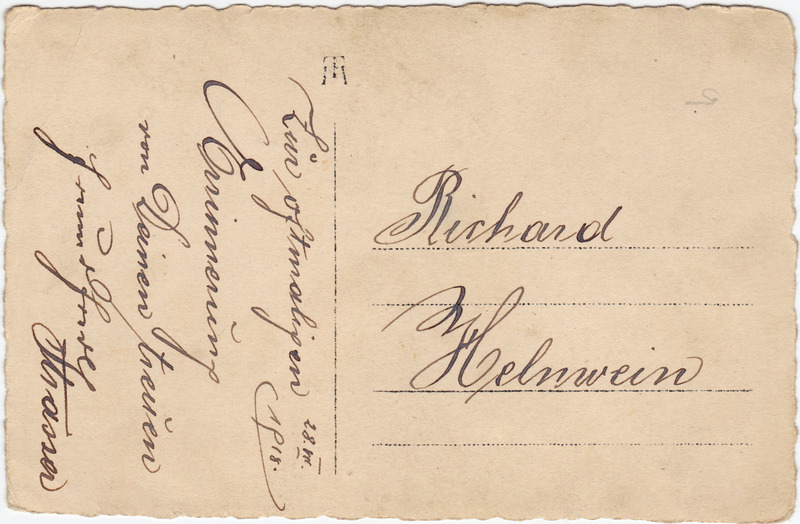 Zur oftmaligen
Erinnerung
von Deinem treuen
Freund
28. VI.
1918.
Richard
Helnwein